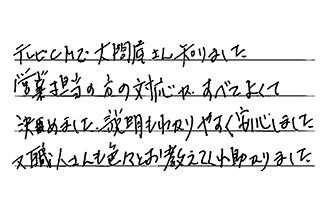 テレビCMで大問屋さん知りました
営業担当の方の対応が、すべてよくて
決めました、説明もわかりやすく安心しました
又職人さんも色々とお教えてくれ助かりました